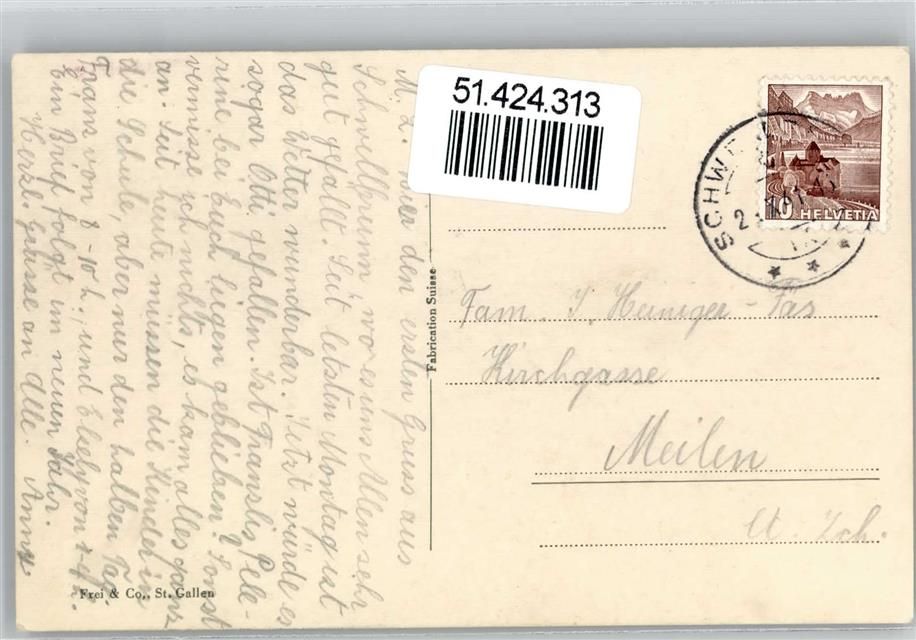 51.424.313
SCHWE
10 HELVETIA
M. L. den ersten Gruss aus
Schwellbrunn wo es uns Allen sehr
gut gefällt. Seit letzten Montag ist
das Wetter wunderbar. Jetzt würde es
sogar Otti gefallen. Ist Franslis Pele-
rine bei Euch liegen geblieben? Sonst
vermisse ich nichts, es kam alles ganz
an. Seit heute müssen die Kinder in
die Schule, aber nur den halben Tag.
Frans von 8-10 h., und Elsely von
Ein Brief folgt im neuen Jahr.
Herzl. Grüsse an Alle. Anny.
Fabrication Suisse
Frei & Co., St. Gallen
Fam. J. Heiniger-Fas
Kirchgasse
Meilen
Kt. Zch.